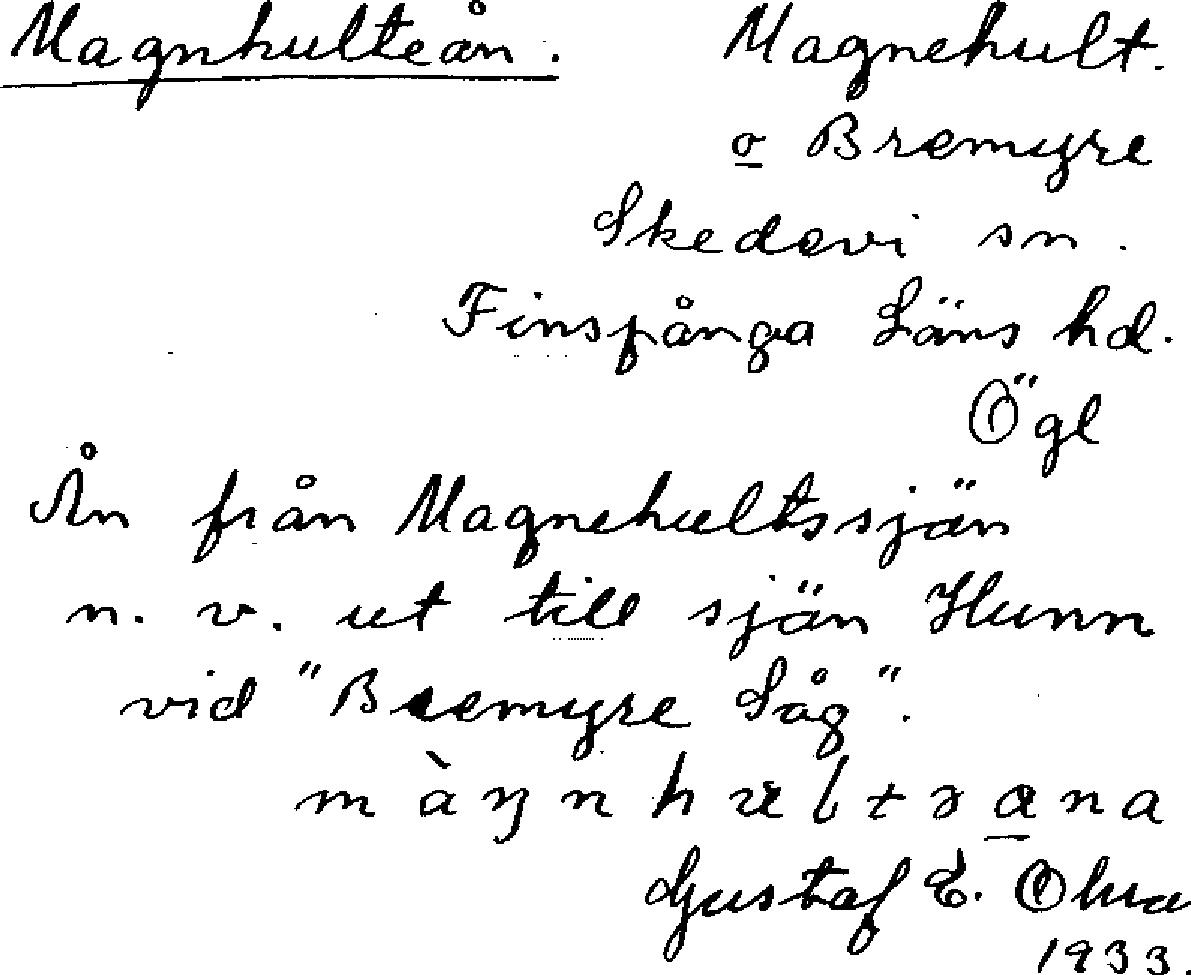 Magnhulteån. Magnehult.
o Bremyre
Skedevi sn.
Finspånga Läns hd.
Ögl
Ån från Magnehultssjän
n. v. ut till sjän Hunn
vid "Bremyre Såg".
Gustaf E.
1933.